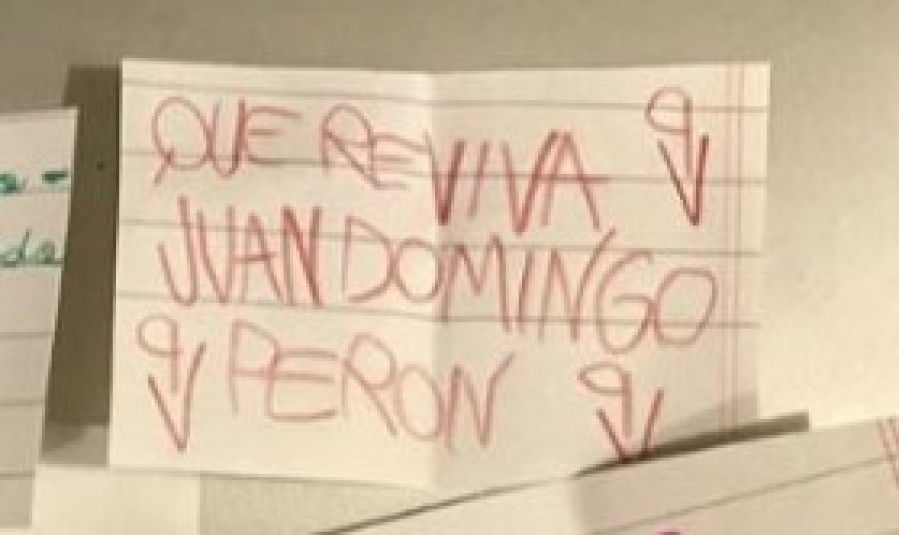 QUE REVIVA
JUAN DOMINGO
PERON
do